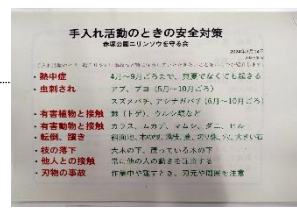 手入れ活動のときの安全対策
赤塚公園ニリンソウを守る会
・熱中症 4月〜9月ごろまで、真夏でなくても起きる
・虫刺され アブ、ブヨ（5月〜10月ごろ）
スズメバチ、アシナガバチ（6月〜10月ごろ）
・有害植物と接触 棘（トゲ）、ウルシ類など
・有害動物と接触 カラス、ムカデ、マムシ、ダニ、ヒル
・転倒、躓き 斜面地、木の根、
・枝の落下 大木の下、茂っている木の下
・他人との接触 常に他の人の動きを注意する
・刃物の事故 作業中や鎌とぎ、刃元や周囲を注意